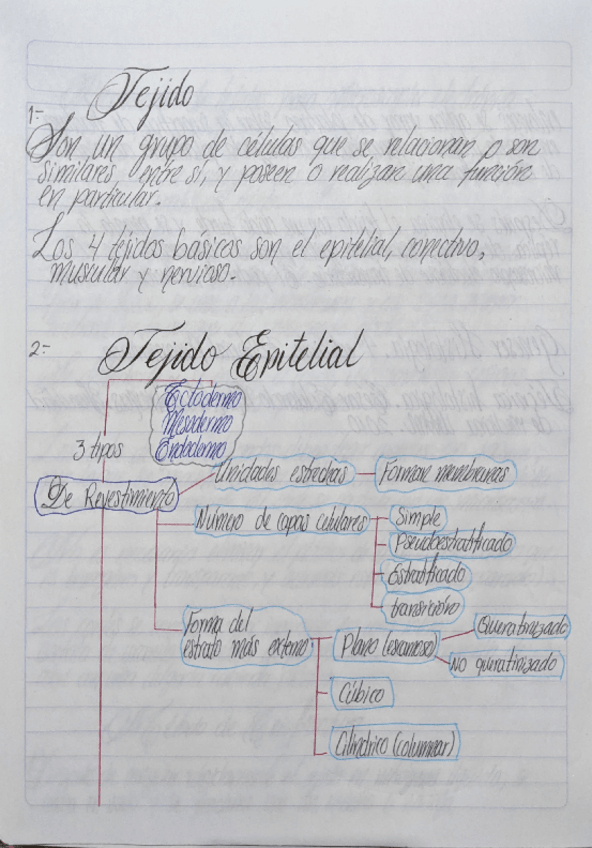 Tejido
1:-
Son un grupo de células que se relacionan o son
similares entre sí, y poseen o realizan una función
en particular.
Los 4 tejidos básicos son el epitelial, conectivo,
muscular y nervioso.
2:-
Tejido Epitelial
Ectodermo
Mesodermo
Endodermo
3 tipos
De Revestimiento
Unidades estrechas
Forman membranas
Número de capas celulares
Simple
Pseudoestratificado
Estratificado
transición
Forma del
estrato más externo
Plano (escamoso)
Queratinizado
No queratinizado
Cúbico
Cilíndrico (columnar)